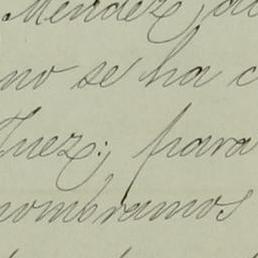 Méndez, 
no se ha
Juez; para
nombramos